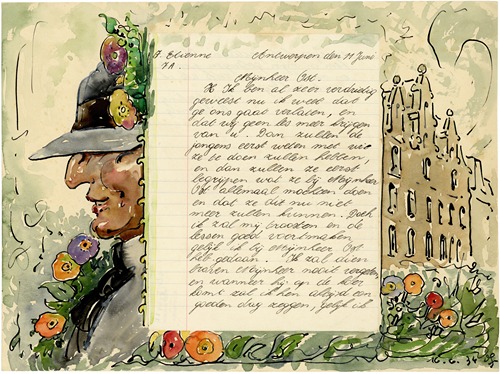 F. Etienne Antwerpen den 11 Juni
7A.
Mijnheer Ost.
Ik ben al zeer verdrietig
geweest nu ik weet dat
ge ons gaat verlaten, en
dat wij geen les meer krijgen
van u. Dan zullen de
jongens eerst weten met wie
ze te doen zullen hebben,
en dan zullen ze eerst
begrijpen wat ze bij Mijnheer
Ost allemaal mochten doen
en dat ze die nu niet
meer zullen kunnen. Doch
ik zal mij braaf en de
lessen goed voormaken
gelijk ik bij Mijnheer Ost
heb gedaan. Ik zal dien
braven Mijnheer nooit vergeten
en wanneer hij op de
komt zal ik hen altijd een
goeden dag zeggen, gelijk ik
16.6.34